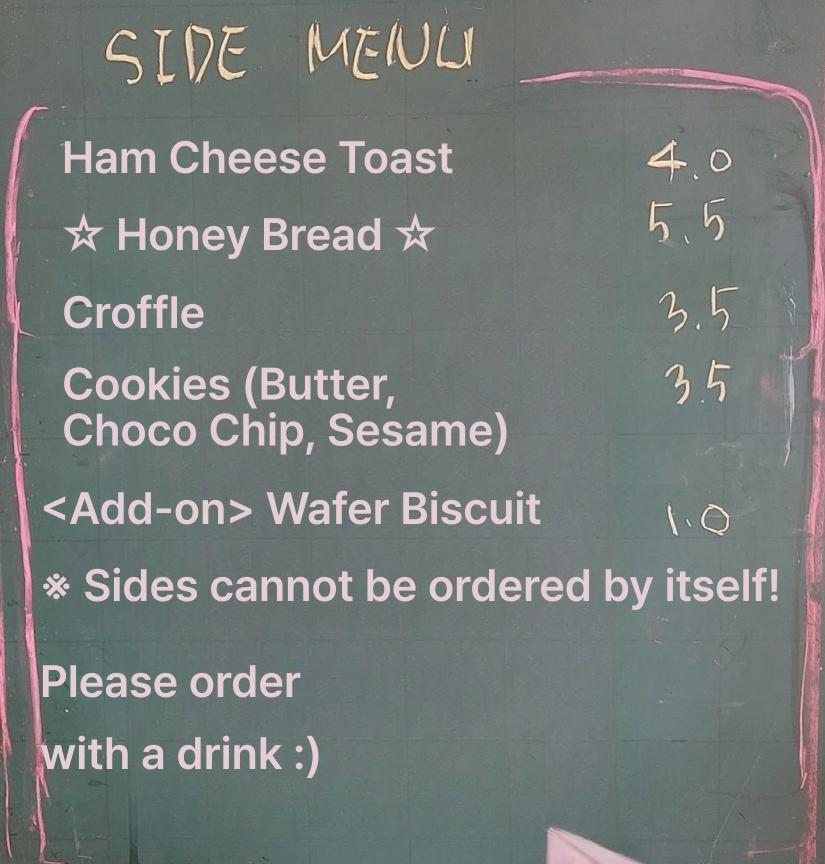 SIDE MENU
Ham Cheese Toast 4.0
☆ Honey Bread ☆ 5.5
Croffle 3.5
Cookies (Butter, 3.5
Choco Chip, Sesame)
<Add-on> Wafer Biscuit 1.0
※ Sides cannot be ordered by itself!
Please order
with a drink :)